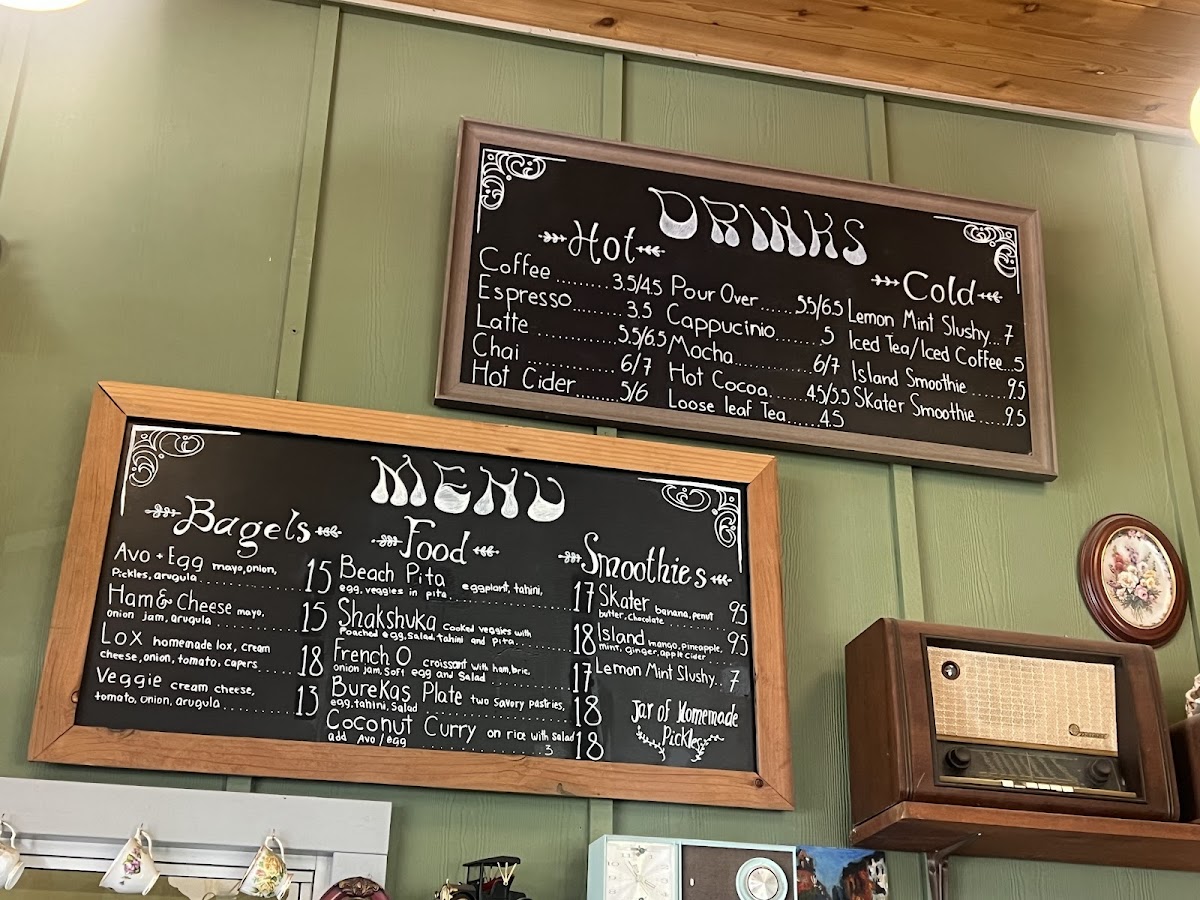 DRINKS
Hot
Coffee ......... 3.5/4.5
Espresso ......... 3.5
Latte ......... 5.5/6.5
Chai ......... 6/7
Hot Cider ......... 5/6
Pour Over ...... 5.5/6.5
Cappucinio ....... 5
Mocha ......... 6/7
Hot Cocoa ...... 4.5/5.5
Loose leaf Tea ...... 4.5
Cold
Lemon Mint Slushy... 7
Iced Tea/Iced Coffee... 5
Island Smoothie ....... 9.5
Skater Smoothie ..... 9.5
MENU
Bagels
Avo + Egg mayo, onion,
Pickles, arugula ......... 15
Ham & Cheese mayo,
onion jam, arugula ......... 15
Lox homemade lox, cream
cheese, onion, tomato, capers 18
Veggie cream cheese,
tomato, onion, arugula ......... 13
Food
Beach Pita eggplant, tahini,
egg, veggies in pita ......... 17
Shakshuka Cooked veggies with
Poached egg, Salad, tahini and pita ... 18
French O croissant with ham, brie,
onion jam, Soft egg and Salad ......... 17
Burekas Plate two Savory pastries,
egg, tahini, Salad ......... 18
Coconut Curry on rice with Salad 18
add Avo / egg ......... 3
Smoothies
Skater banana, penut
butter, chocolate ......... 9.5
Island mango, pineapple,
mint, ginger, apple cider 9.5
Lemon Mint Slushy.. 7
Jar of Homemade
Pickles